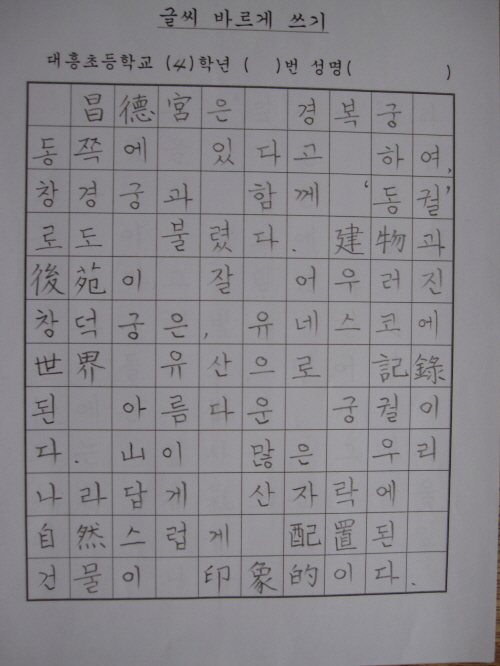 글씨 바르게 쓰기
대흥초등학교 (4)학년 ( )번 성명( )
昌德宮은 경복궁
동쪽에 있다고 하여,
창경궁과 함께 '동궐'
로도 불렸다. 建物과
後苑이 잘 어우러진
창덕궁은, 유네스코에
世界 유산으로 記錄
된 아름다운 궁궐이
다. 山이 많은 우리
나라답게 산자락에
自然스럽게 配置된
건물이 印象的이다.